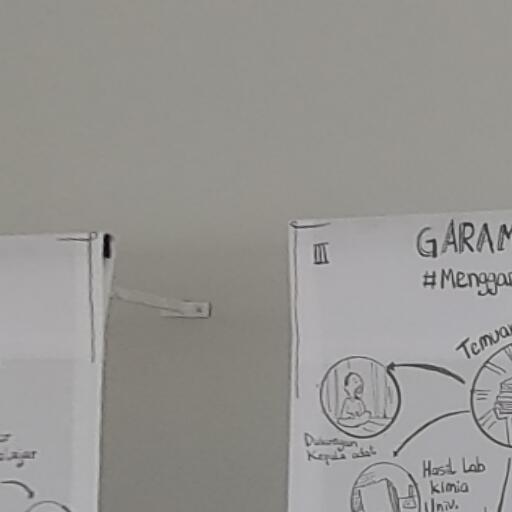 III
GARAM
#Menggar
Temuan
Dukungan
Kepala adat
Hasil Lab
Kimia
Univ.